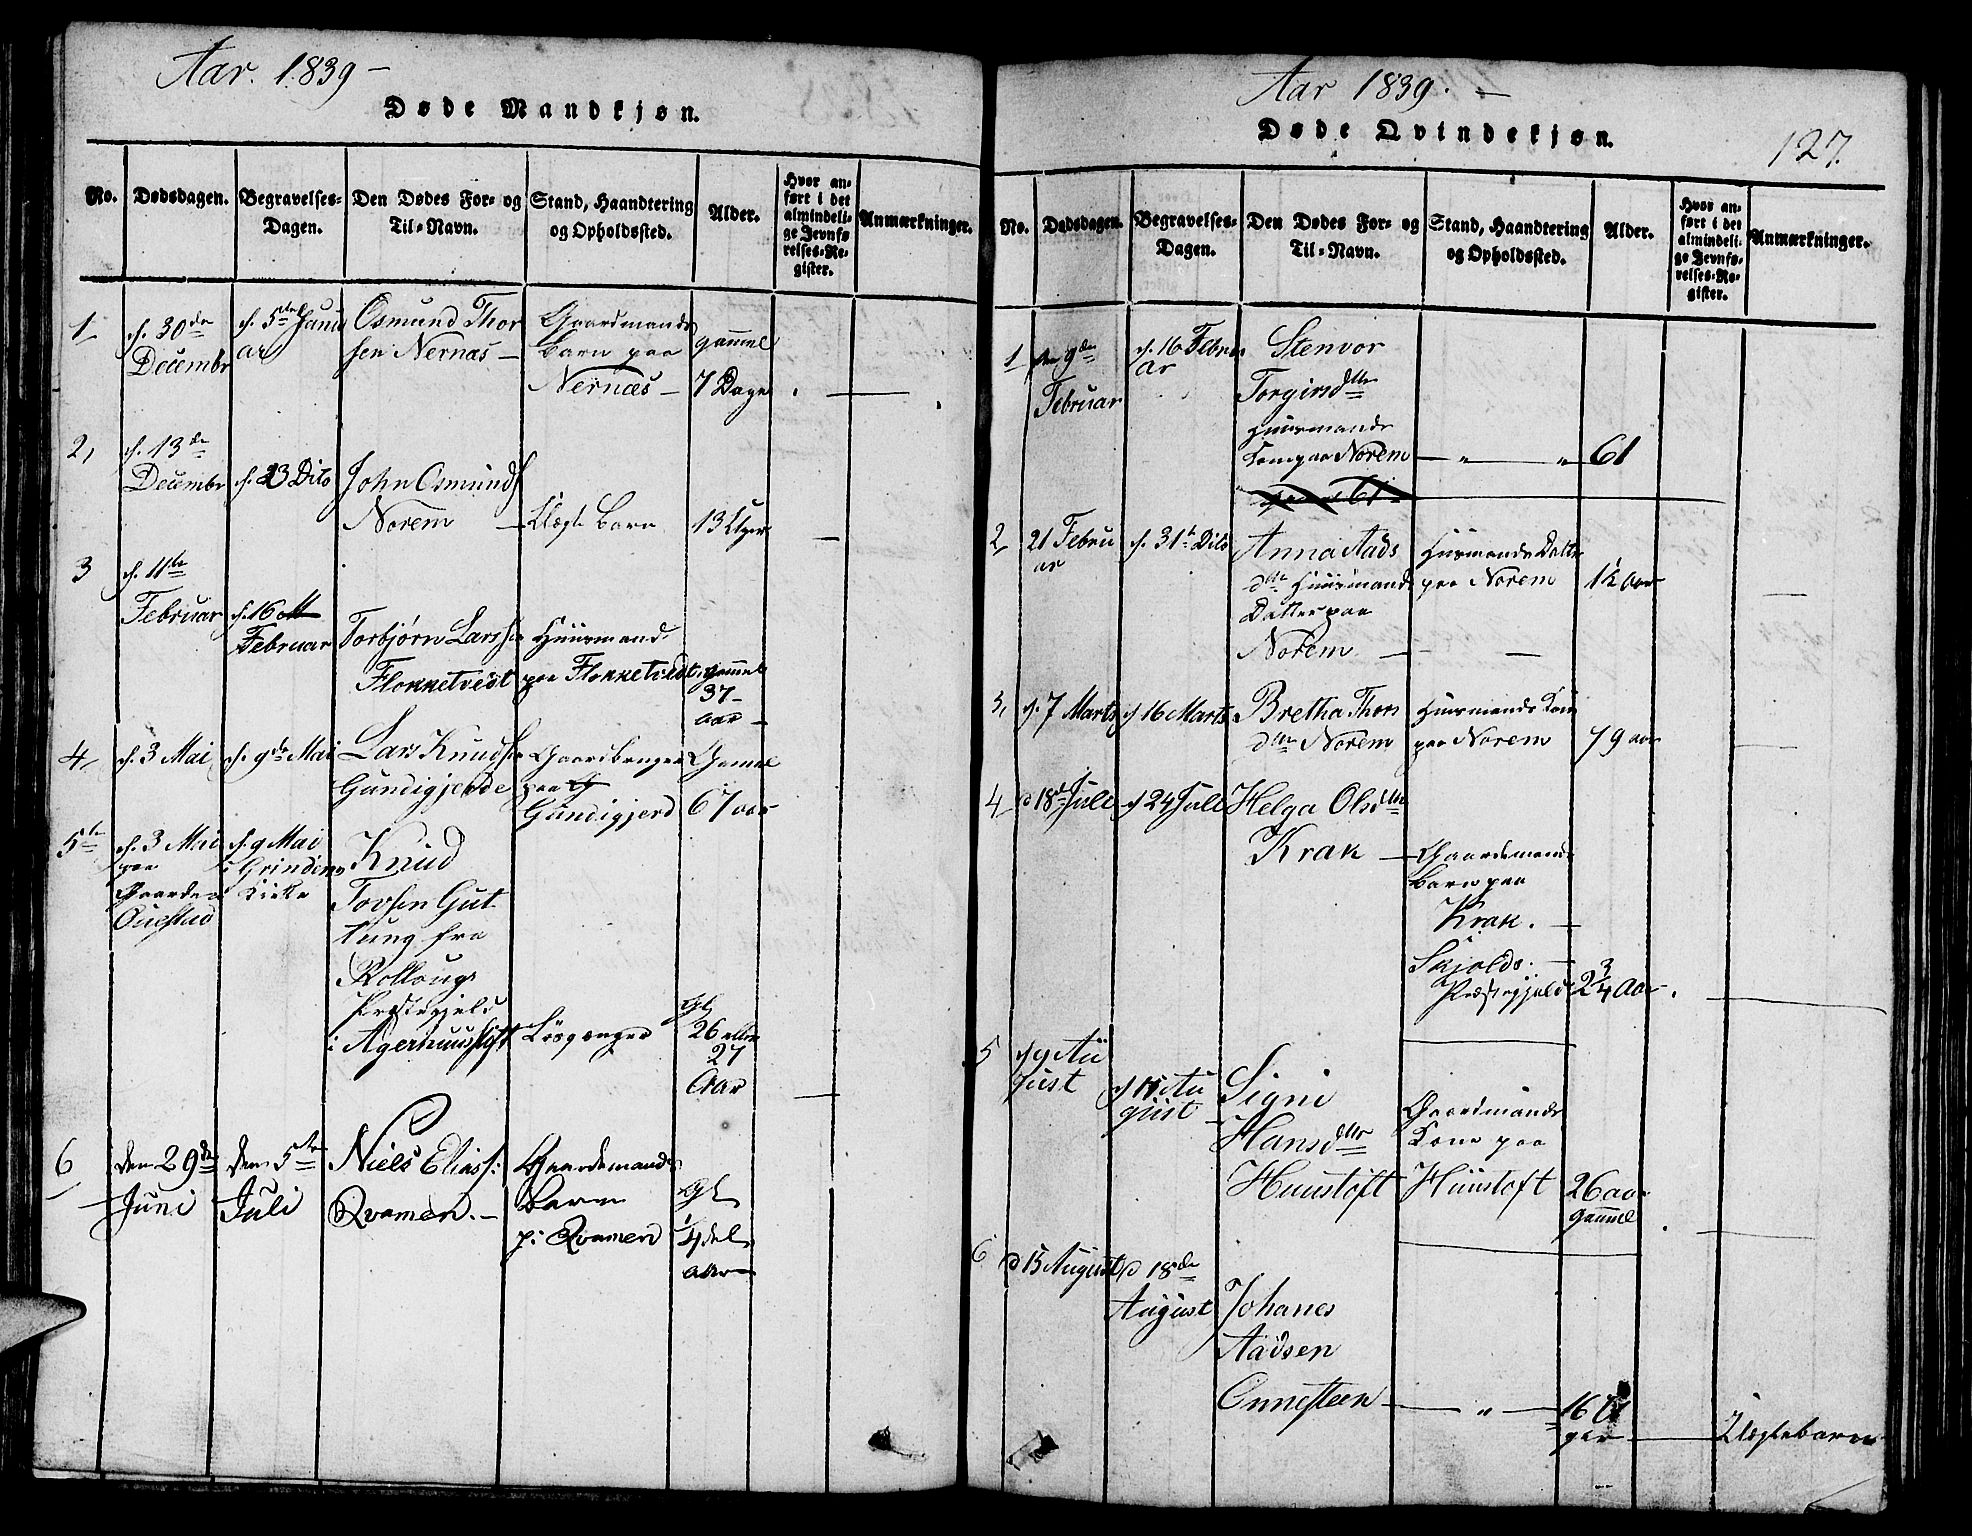 Aar. 1839 –
Døde Mandkjøn.
No.
Dødsdagen.
Begravelses-
Dagen.
Den Dødes For- og
Til-Navn.
Stand, Haandtering
og Opholdssted.
Alder.
Hvor an-
ført i det
almindeli-
ge Jevnfø-
relses-Re-
gister.
Anmærkninger.
1
d. 30de
Decembr
d. 5te Janu
ar
Osmund Thor
sen Nernæs –
Gaardmands
barn paa
Nernæs –
gammel
7 Dage
2,
d. 13de
Decembr
d. 23 Dito
John Osmunds
Norem –
Uægte Barn
13 Uger
3
d. 11te
Februar
d. 16
Februar
Torbjørn Larss
Flokketvedt
Huusmand
paa Flokketvedt
gammel
37 –
aar –
4,
d. 3 Mai
d. 9de Mai
Lars Knuds
Gundigjerde
Gaardbruger
paa G
Gundigjerd
Gamel
67 aar
5te
d. 3 Mai
paa
Gaarden
Ouestad
d. 9 Mai
i Grindens
Kirke
Knud
Tovsen Gut
tung fra
Rollougs
Præstegjeld
i Agerhuus Stift
Løsgænger
Gl
26 eller
27
Aar
6
den 29de
Juni
den 5te
Juli
Niels Eliass:
Qvamen. –
Gaardemands
Barn
p: Qvamen
Gl
1/4 del
aar
Aar 1839. –
Døde Qvindekjøn.
127.
No.
Dødsdagen.
Begravelses-
Dagen.
Den Dødes For- og
Til-Navn.
Stand, Haandtering
og Opholdssted.
Alder.
Hvor an-
ført i det
almindeli-
ge Jevnfø-
relses-Re-
gister.
Anmærkninger.
1
den 9de
Februar
d. 16 Febru
ar
Stenvor
Torgirsdtr
Huusmands
Kone paa Norem
61
61
2,
21 Febru
ar
d. 31te Dito
Anna Aads
dtr Huusmands
Datter paa
Norem –
Huusmands Datter
paa Norem
1½ Aar
3,
d. 7 Marts
d 16 Marts
Bretha Thors
dtr Norem
Huusmands Kone
paa Norem
79 aar
4
d 18de Juli
d 24 Juli
Helga Olsdtr
Krak
Gaardemands
barn paa
Krak. –
Skjolds. –
Præstegjeld
2 3/4 Aar.
5
d 9 Au
gust
d 11 Au
gust
Signi
Hansdtr
Huustoft
Gaardmands
Kone paa
Huustoft
26 aar
gammel
6
d 15 August
d 18de
August
Johanes
Aadsen
Onnesteen
16 U
ger
Uægtebarn